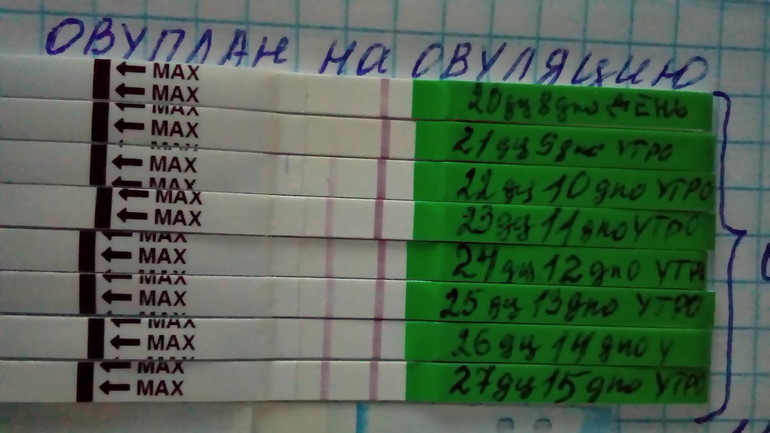 ОВУПЛАН НА ОВУЛЯЦИЮ
MAX
MAX 20 дц 8 дпо ДЕНЬ
MAX
MAX 21 дц 9 дпо УТРО
MAX 22 дц 10 дпо УТРО
MAX
MAX
MAX 23 дц 11 дпо УТРО
MAX
MAX 24 дц 12 дпо УТР
MAX
MAX 25 дц 13 дпо УТРО
MAX
MAX 26 дц 14 дпо У
MAX
MAX 27 дц 15 дпо УТРО